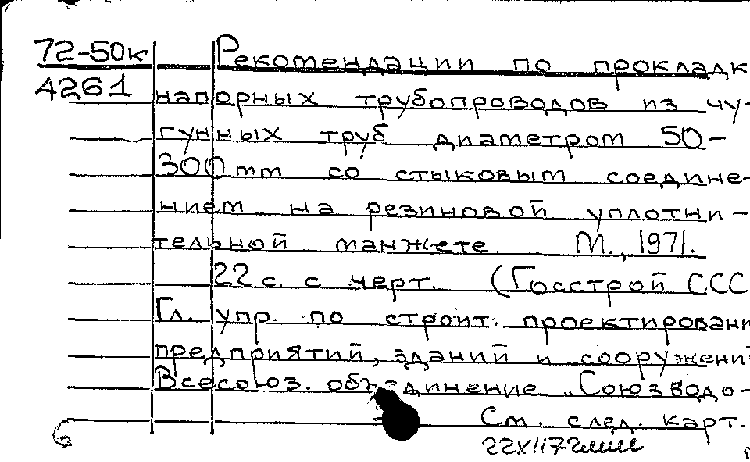 72-50к Рекомендации по прокладк
4261 напорных трубопроводов из чу-
гунных труб диаметром 50-
300 мм со стыковым соедине-
нием на резиновой уплотни-
тельной манжете М., 1971.
22 с. с черт. (Госстрой ССС
Гл. упр. по строит. проектировани
предприятий, зданий и сооружени
Всесоюз. объединение „Союзводо-
См. след. карт.
6